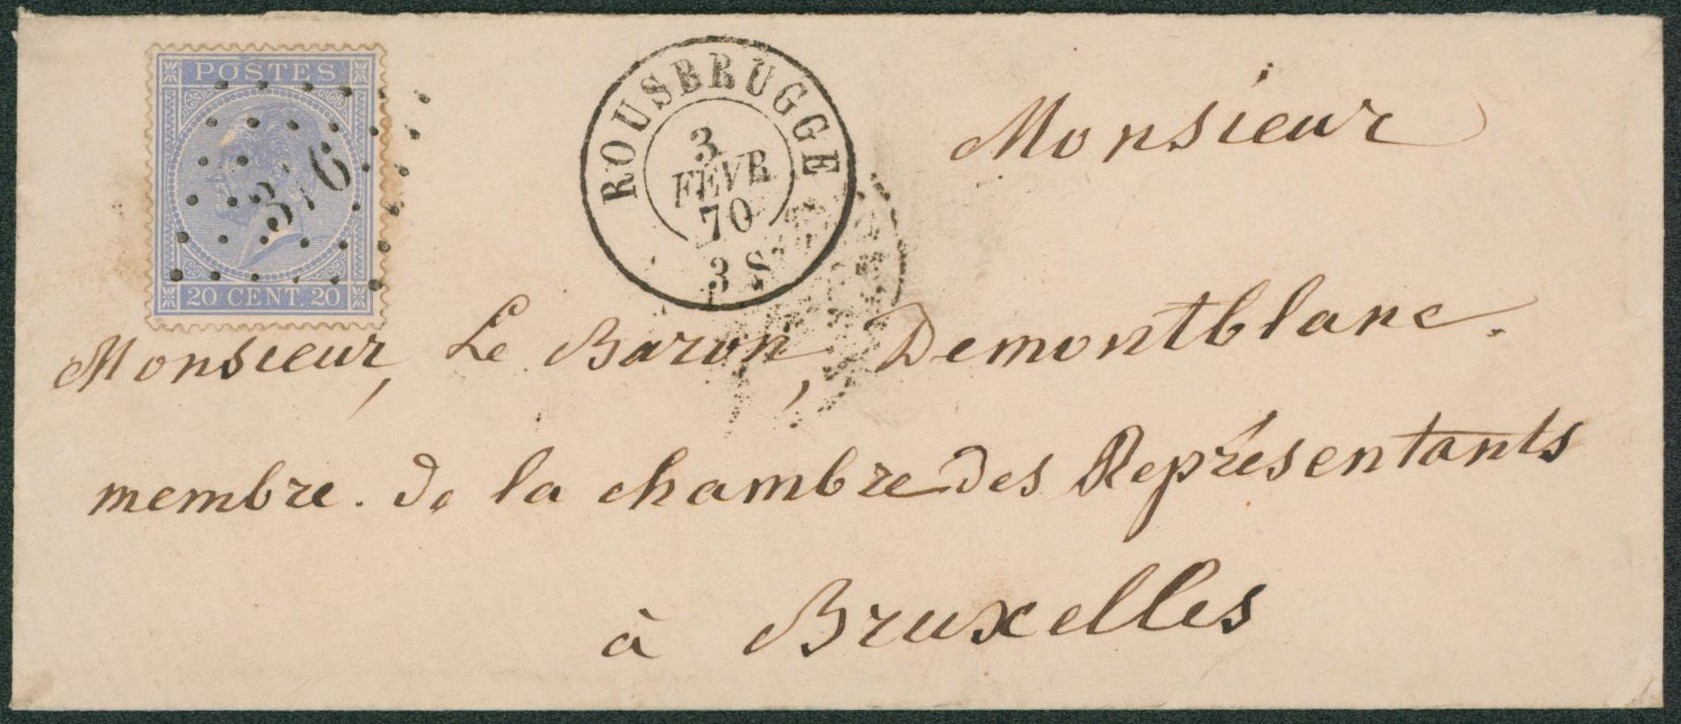 POSTES
316
20 CENT. 20
ROUSBRUGGE
3
FÉVR
70
3 S
Monsieur
Monsieur, Le Baron, Demontblanc.
membre. de la chambre des Représentants
à Bruxelles